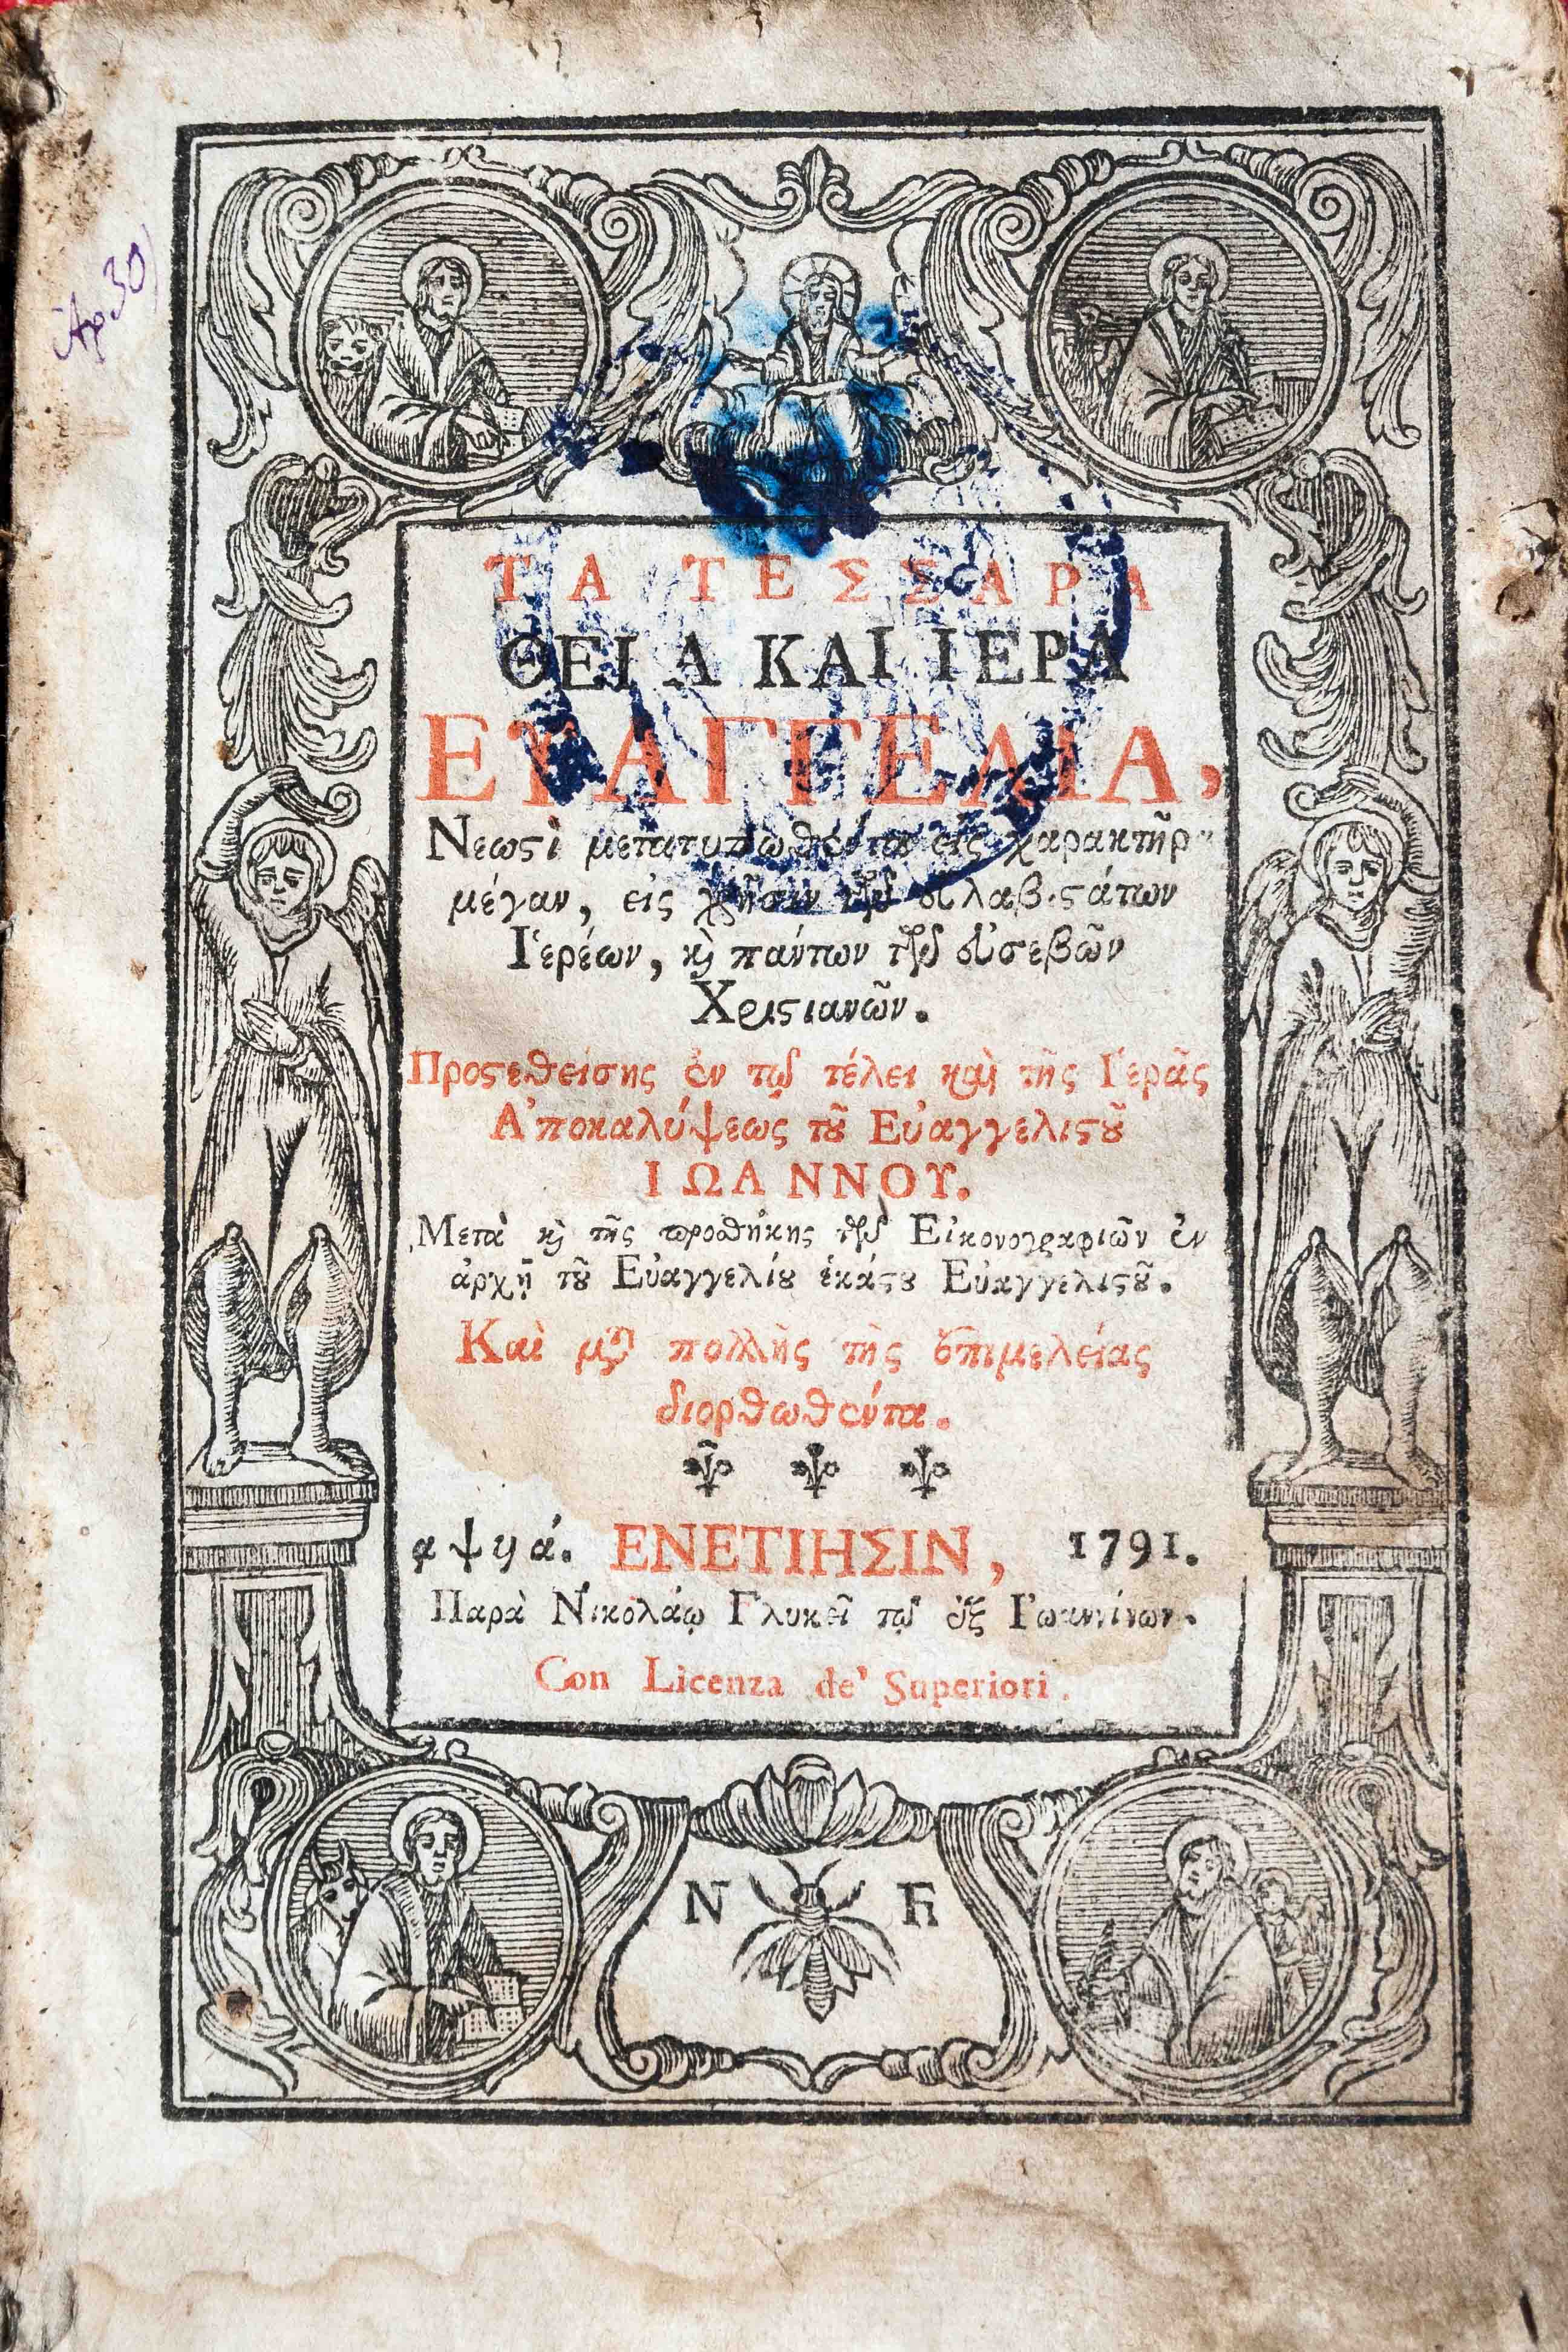 Αρ 30
ΤΑ ΤΕΣΣΑΡΑ
ΘΕΙΑ ΚΑΙ ΙΕΡΑ
ΕΥΑΓΓΕΛΙΑ,
Νεωϛὶ μετατυπωθέντα εἰς χαρακτῆρα
μέγαν, εἰς χρῆσιν τῶν εὐλαβεϛάτων
Ἱερέων, ϗ πάντων τῶν εὐσεβῶν
Χριϛιανῶν.
Προϛεθείσης ἐν τῷ τέλει καὶ τῆς Ἱερᾶς
Ἀποκαλύψεως τȣ͂ Εὐαγγελιϛȣ͂
ΙΩΑΝΝΟΥ.
Μετὰ ϗ τῆς προσθήκης τῶν Εἰκονογραφιῶν ἐν
ἀρχῇ τȣ͂ Εὐαγγελίȣ ἑκάϛȣ Εὐαγγελιϛȣ͂.
Καὶ μετὰ πολλῆς τῆς ἐπιμελείας
διορθωθέντα.
αψϟά. ΕΝΕΤΙΗΣΙΝ, 1791.
Παρὰ Νικολάῳ Γλυκεῖ τῷ ἐξ Ἰωαννίνων.
Con Licenza de' Superiori.
N